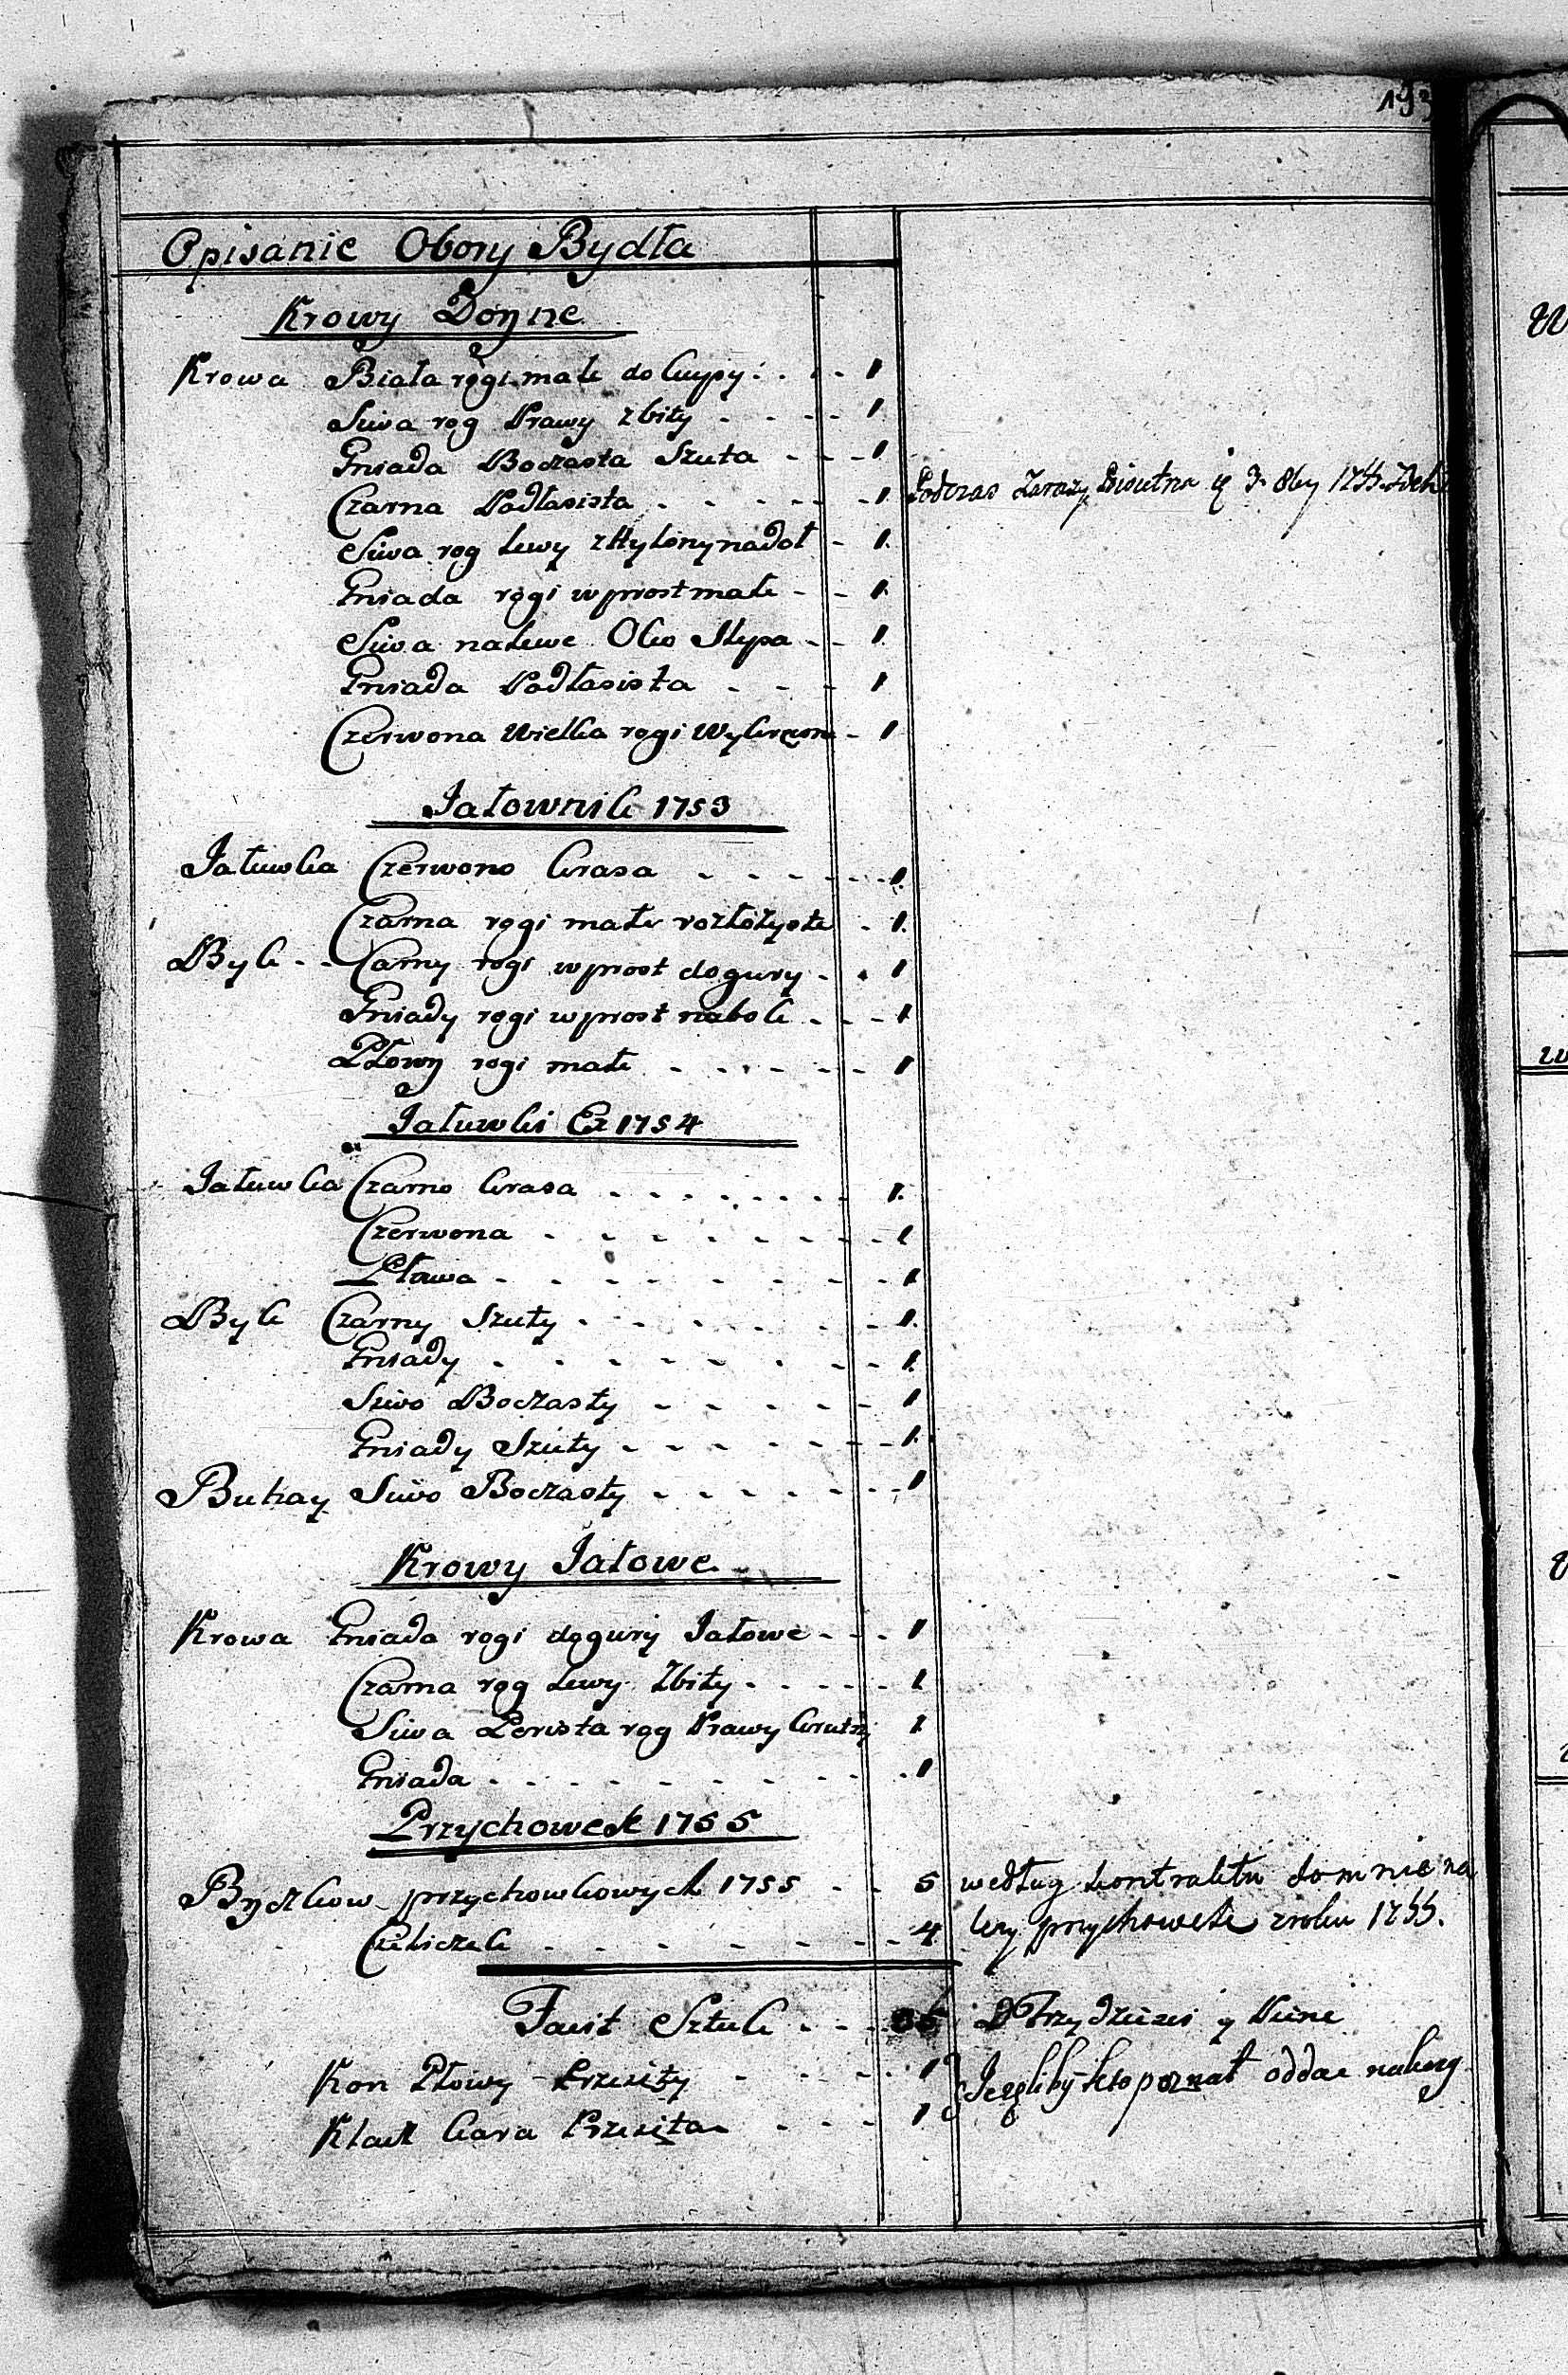 193
Opisanie Obory Bydła
Krowy Doyne
Krowa Biała rogi małe do kupy 1
Siwa rog Prawy zbity 1
Gniada Boczasta Szuta 1
Czarna Podłasista 1 Podczas Zarazy 3. 8bry 1755.
Siwa rog Lewy zchylony nadoł 1.
Gniada rogi wprost małe 1.
Siwa na Lewe Oko Slypa 1.
Gniada Podłasista 1
Czerwona Wielka rogi 1
Jałownik 1753
Jałuwka Czerwono krasa 1.
Czarna rogi małe rozłożyste 1.
Byk Czarny rogi wprost dogury 1
Gniady rogi wprost nabok 1
Płowy rogi małe 1
Jałuwki Ex 1754
Jałuwka Czarno krasa 1.
Czerwona 1
Płowa 1.
Byk Czarny Szuty 1.
Gniady 1.
Siwo Boczasty 1
Gniady Szuty 1.
Buhay Siwo Boczasty 1
Krowy Jałowe
Krowa Gniada rogi dogury Jałowe 1
Czarna rog Lewy Zbity 1
Siwa Perista rog Prawy 1
Gniada 1
Przychowek 1755
Byczkow przychowkowych 1755 5 według kontraktu do mnie na
Cieliczek 4 leży przychowek zroku 1755.
Facit Sztuk 35 D Trzydzieści y Pięć
Kon Płowy 1
Klacz kara 1 Jeżeliby kto poznał oddac należy